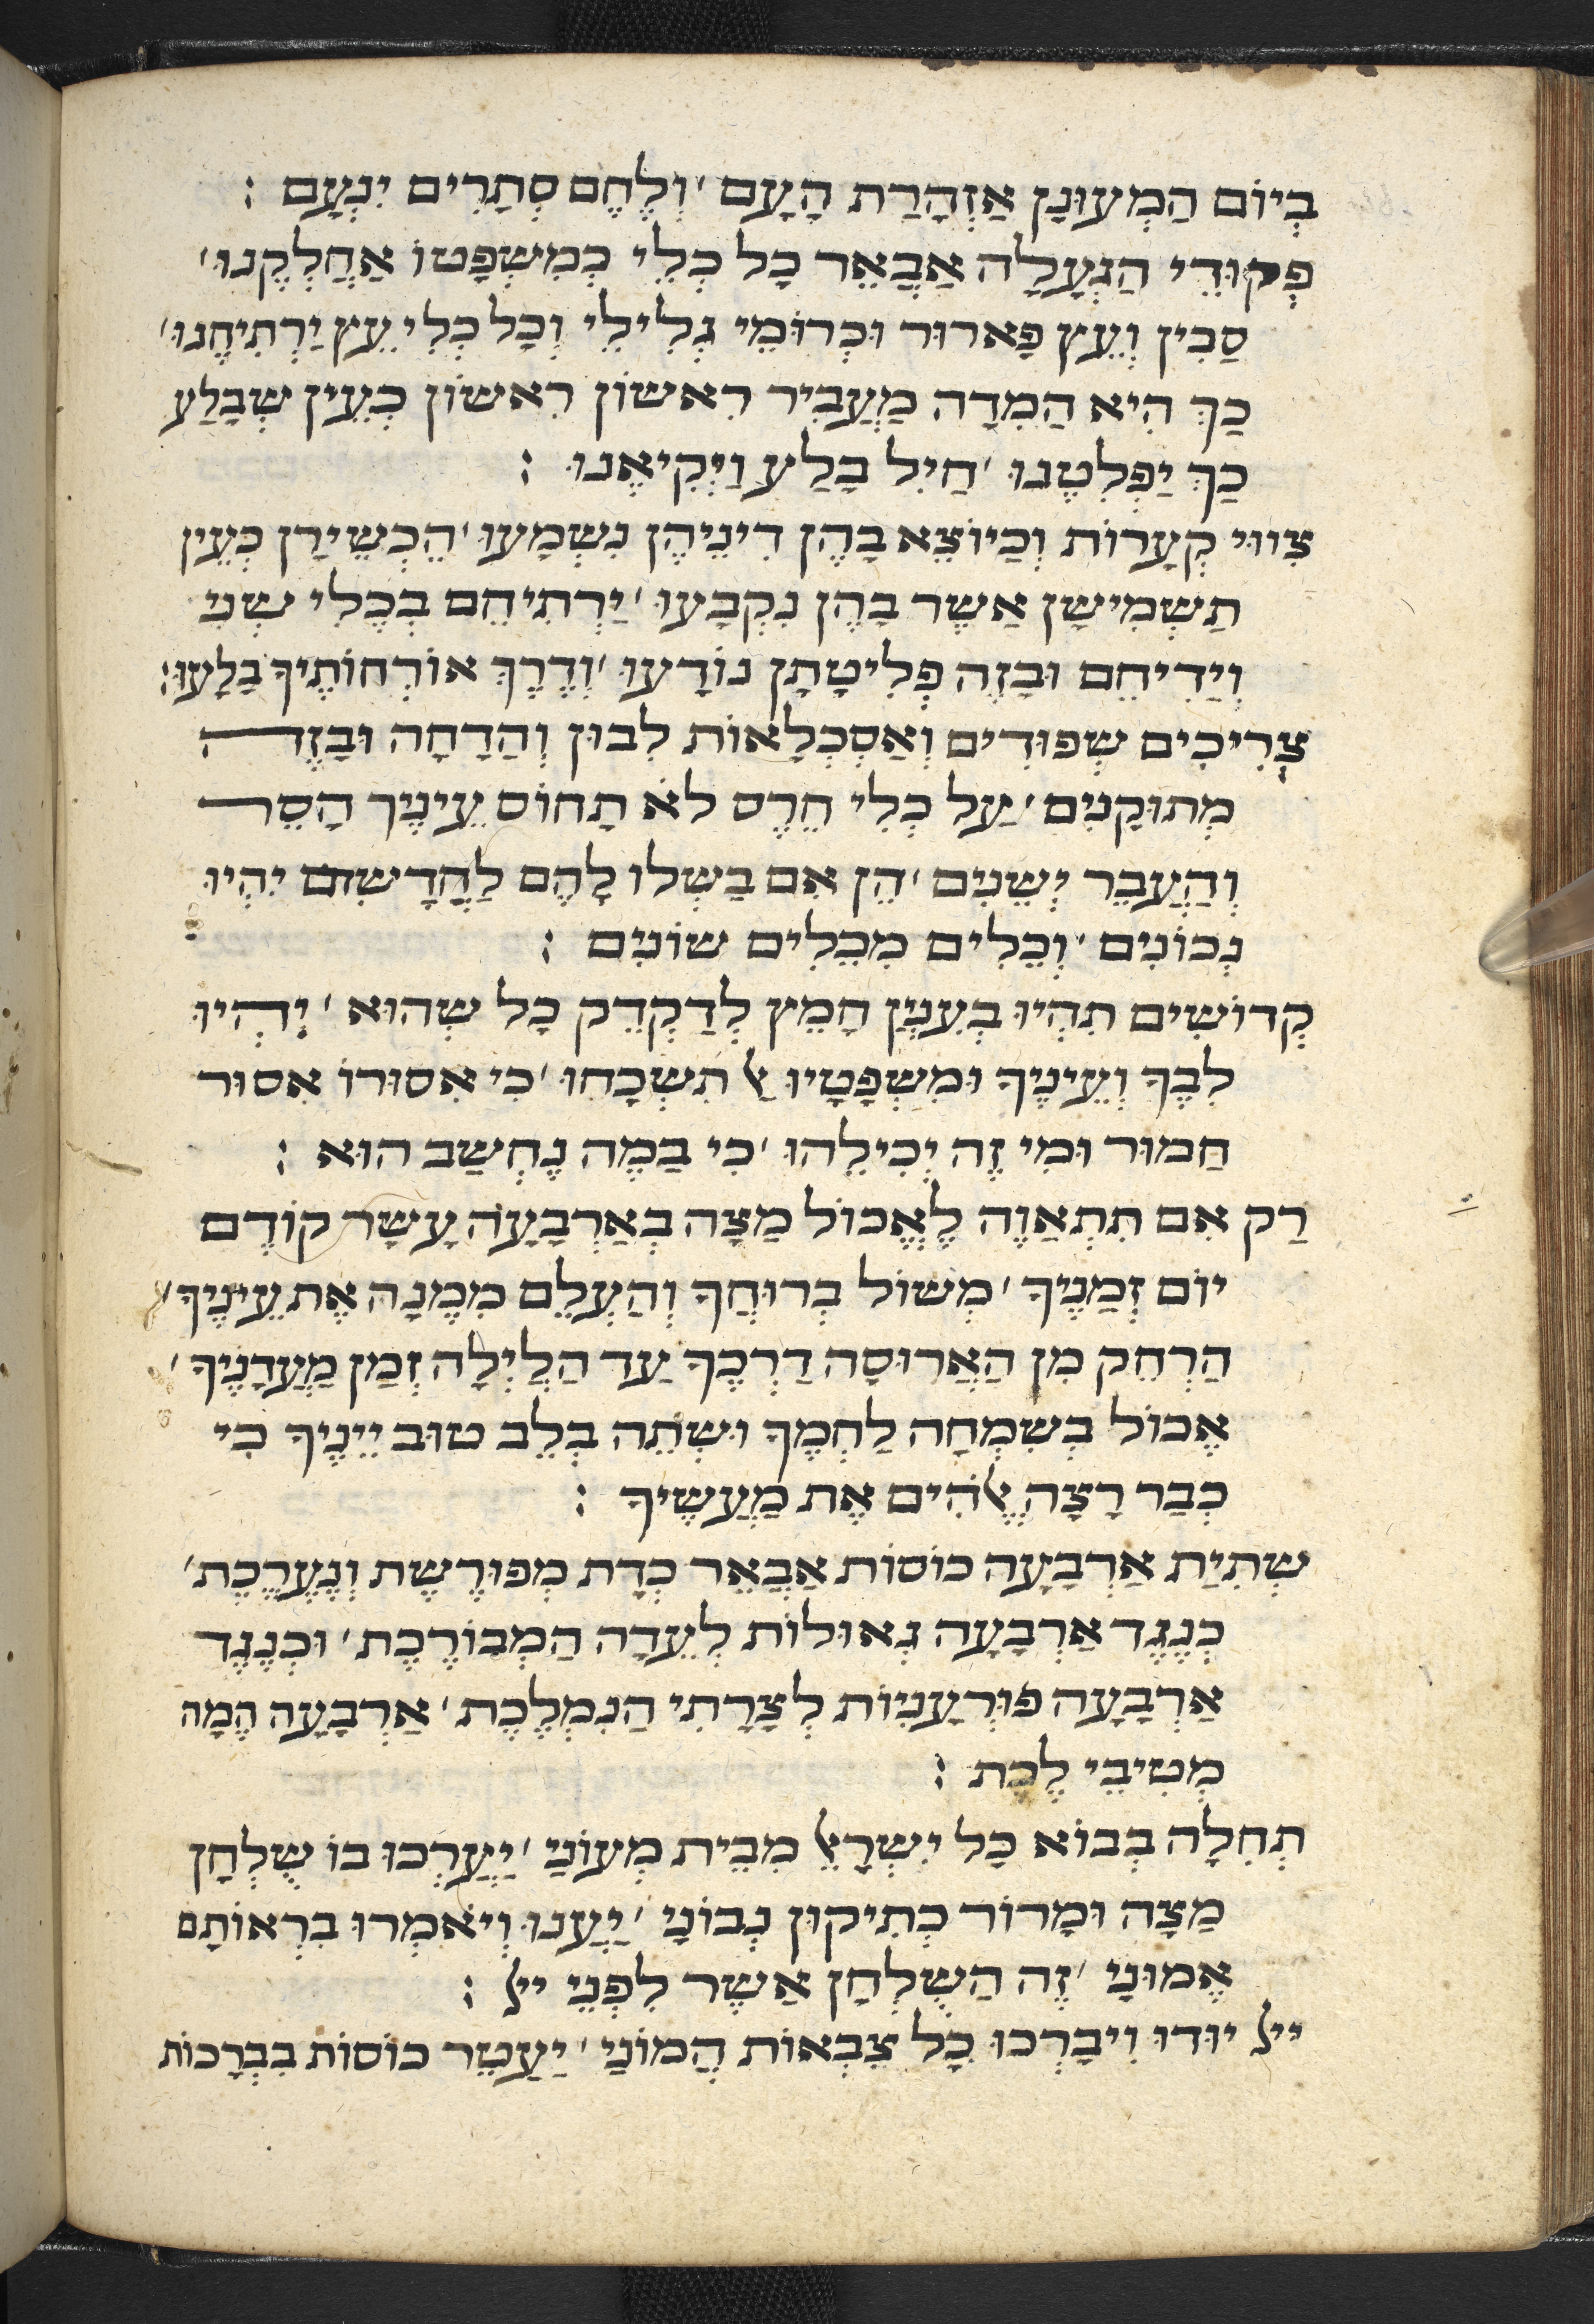 בְּיוֹם הַמְעוּנָן אַזְהָרַת הָעָם ׳ וְלֶחֶם סְתָרִים יִנְעָם :
פְקוּדֵי הַגְעָלָה אֲבָאֵר כָל כְּלֵי כְמִשְׁפָּטוֹ אֲחַלְקֶנוּ ׳
סַכִין וְעֵץ פָארוּר וּכְרוּמֵי גְלִילֵי וְכָל כְּלִי עֵץ יַרְתִיחֶנוּ ׳
כַךְ הִיא הַמִדָה מַעֲבִיר רִאשׁוֹן רִאשׁוֹן כְעֵין שְׁבָלַע
כַךְ יַפְלִטֶנוּ ׳ חַיִל בָּלַע וַיְקִיאֶנוּ :
צִווּי קְעָרוֹת וְכַיוֹצֵא בָהֶן דִינֵיהֶן נִשְׁמָעוּ ׳ הֶכְשֵׁירָן כְּעֵין
תַשְׁמִישָׁן אַשֶׁר בָּהֶן נִקְבָּעוּ ׳ יַרְתִיחֵם בְּכֶלִי שְׁנִי
וְיַדִיחֵם וּבָזֶה פְּלִיטָתָן נוֹדָעוּ ׳ וְדֶרֶךְ אוֹרְחוֹתֶיךָ בָּלָעוּ :
צְרִיכִים שְׁפוּדִים וְאַסְכְלָאוֹת לִבוּן וְהַדָחָה וּבָזֶה
מְתוּקָנִים ׳ עַל כְּלִי חֶרֶס לֹא תָחוֹס עֵינֶיך הָסֵר
וְהַעֲבֵר יְשֵׁנִים ׳ הֵן אִם בַשְׁלוּ לָהֶם לַחֲדָשִׁים יִהְיוּ
נְכוֹנִים ׳ וְכֵלִים מִכֵלִים שׁוֹנִים :
קְדוֹשִׁים תִהְיוּ בְּעִנְיָן חָמֵץ לְדַקְדֵק כָל שְׁהוּא ׳ יְהְיוּ
לִבֶּךָ וְעֵינֶיךָ וּמִשְׁפָּטָיו אַל תִשְׁכָחוּ ׳ כִי אִסוּרוֹ אִסוּר
חַמוּר וּמִי זֶה יְכִילֵהוּ ׳ כִי בַמֶה נֶחְשַׁב הוּא :
רַק אִם תִתְאַוֶה לֶאֱכוֹל מַצָה בְּאַרְבָּעָה עָשָׂר קוֹדֶם
יוֹם זְמַנֶיךָ ׳ מְשׁוֹל בְּרוּחֲךָ וְהַעְלֵם מִמֶנָה אֶת עֵינֶיךָ ׳
הַרְחֵק מִן הָאֲרוּסָה דַרְכֶּךָ עַד הַלַיְלָה זְמַן מַעֲדָנֶיךָ ׳
אֶכוֹל בְּשִׂמְחָה לַחְמֶךָ וּשְׁתֵה בְלֵב טוּב יֵינֶיךָ כִי
כְּבַר רָצָה אֱלֹהִים אֶת מַעֲשֶׂיךָ :
שְׁתִיַת אַרְבָּעָה כּוֹסוֹת אֲבָאֵר כְדָת מְפוּרֶשֶׁת וְנֶעֱרֶכֶת ׳
כְּנֶגֶד אַרְבָּעָה גְאוּלוֹת לְעֵדָה הַמְבוֹרֶכֶת ׳ וּכְנֶגֶד
אַרְבָּעָה פּוּרְעָנִיוֹת לְצָרָתִי הַנִמְלֶכֶת ׳ אַרְבָּעָה הֶמָה
מְטִיבֵי לֶכֶת :
תְחִלָה בְּבוֹא כָל יִשְׂרָאֵל מִבֵּית מְעוֹנַי ׳ יַעֲרְכוּ בוֹ שֻׁלְחָן
מַצָה וּמָרוֹר כְּתִיקוּן נְבוֹנָי ׳ יַעֲנוּ וְיֹאמְרוּ בִּרְאוֹתָם
אֶמוּנַי ׳ זֶה הַשֻׁלְחָן אַשֶׁר לִפְנֵי ייָ :
ייָ יוֹדוּ וִיבָרְכוּ כָל צִבְאוֹת הֲמוֹנַי ׳ יַעַטֵר כּוֹסוֹת בִּבְרָכוֹת